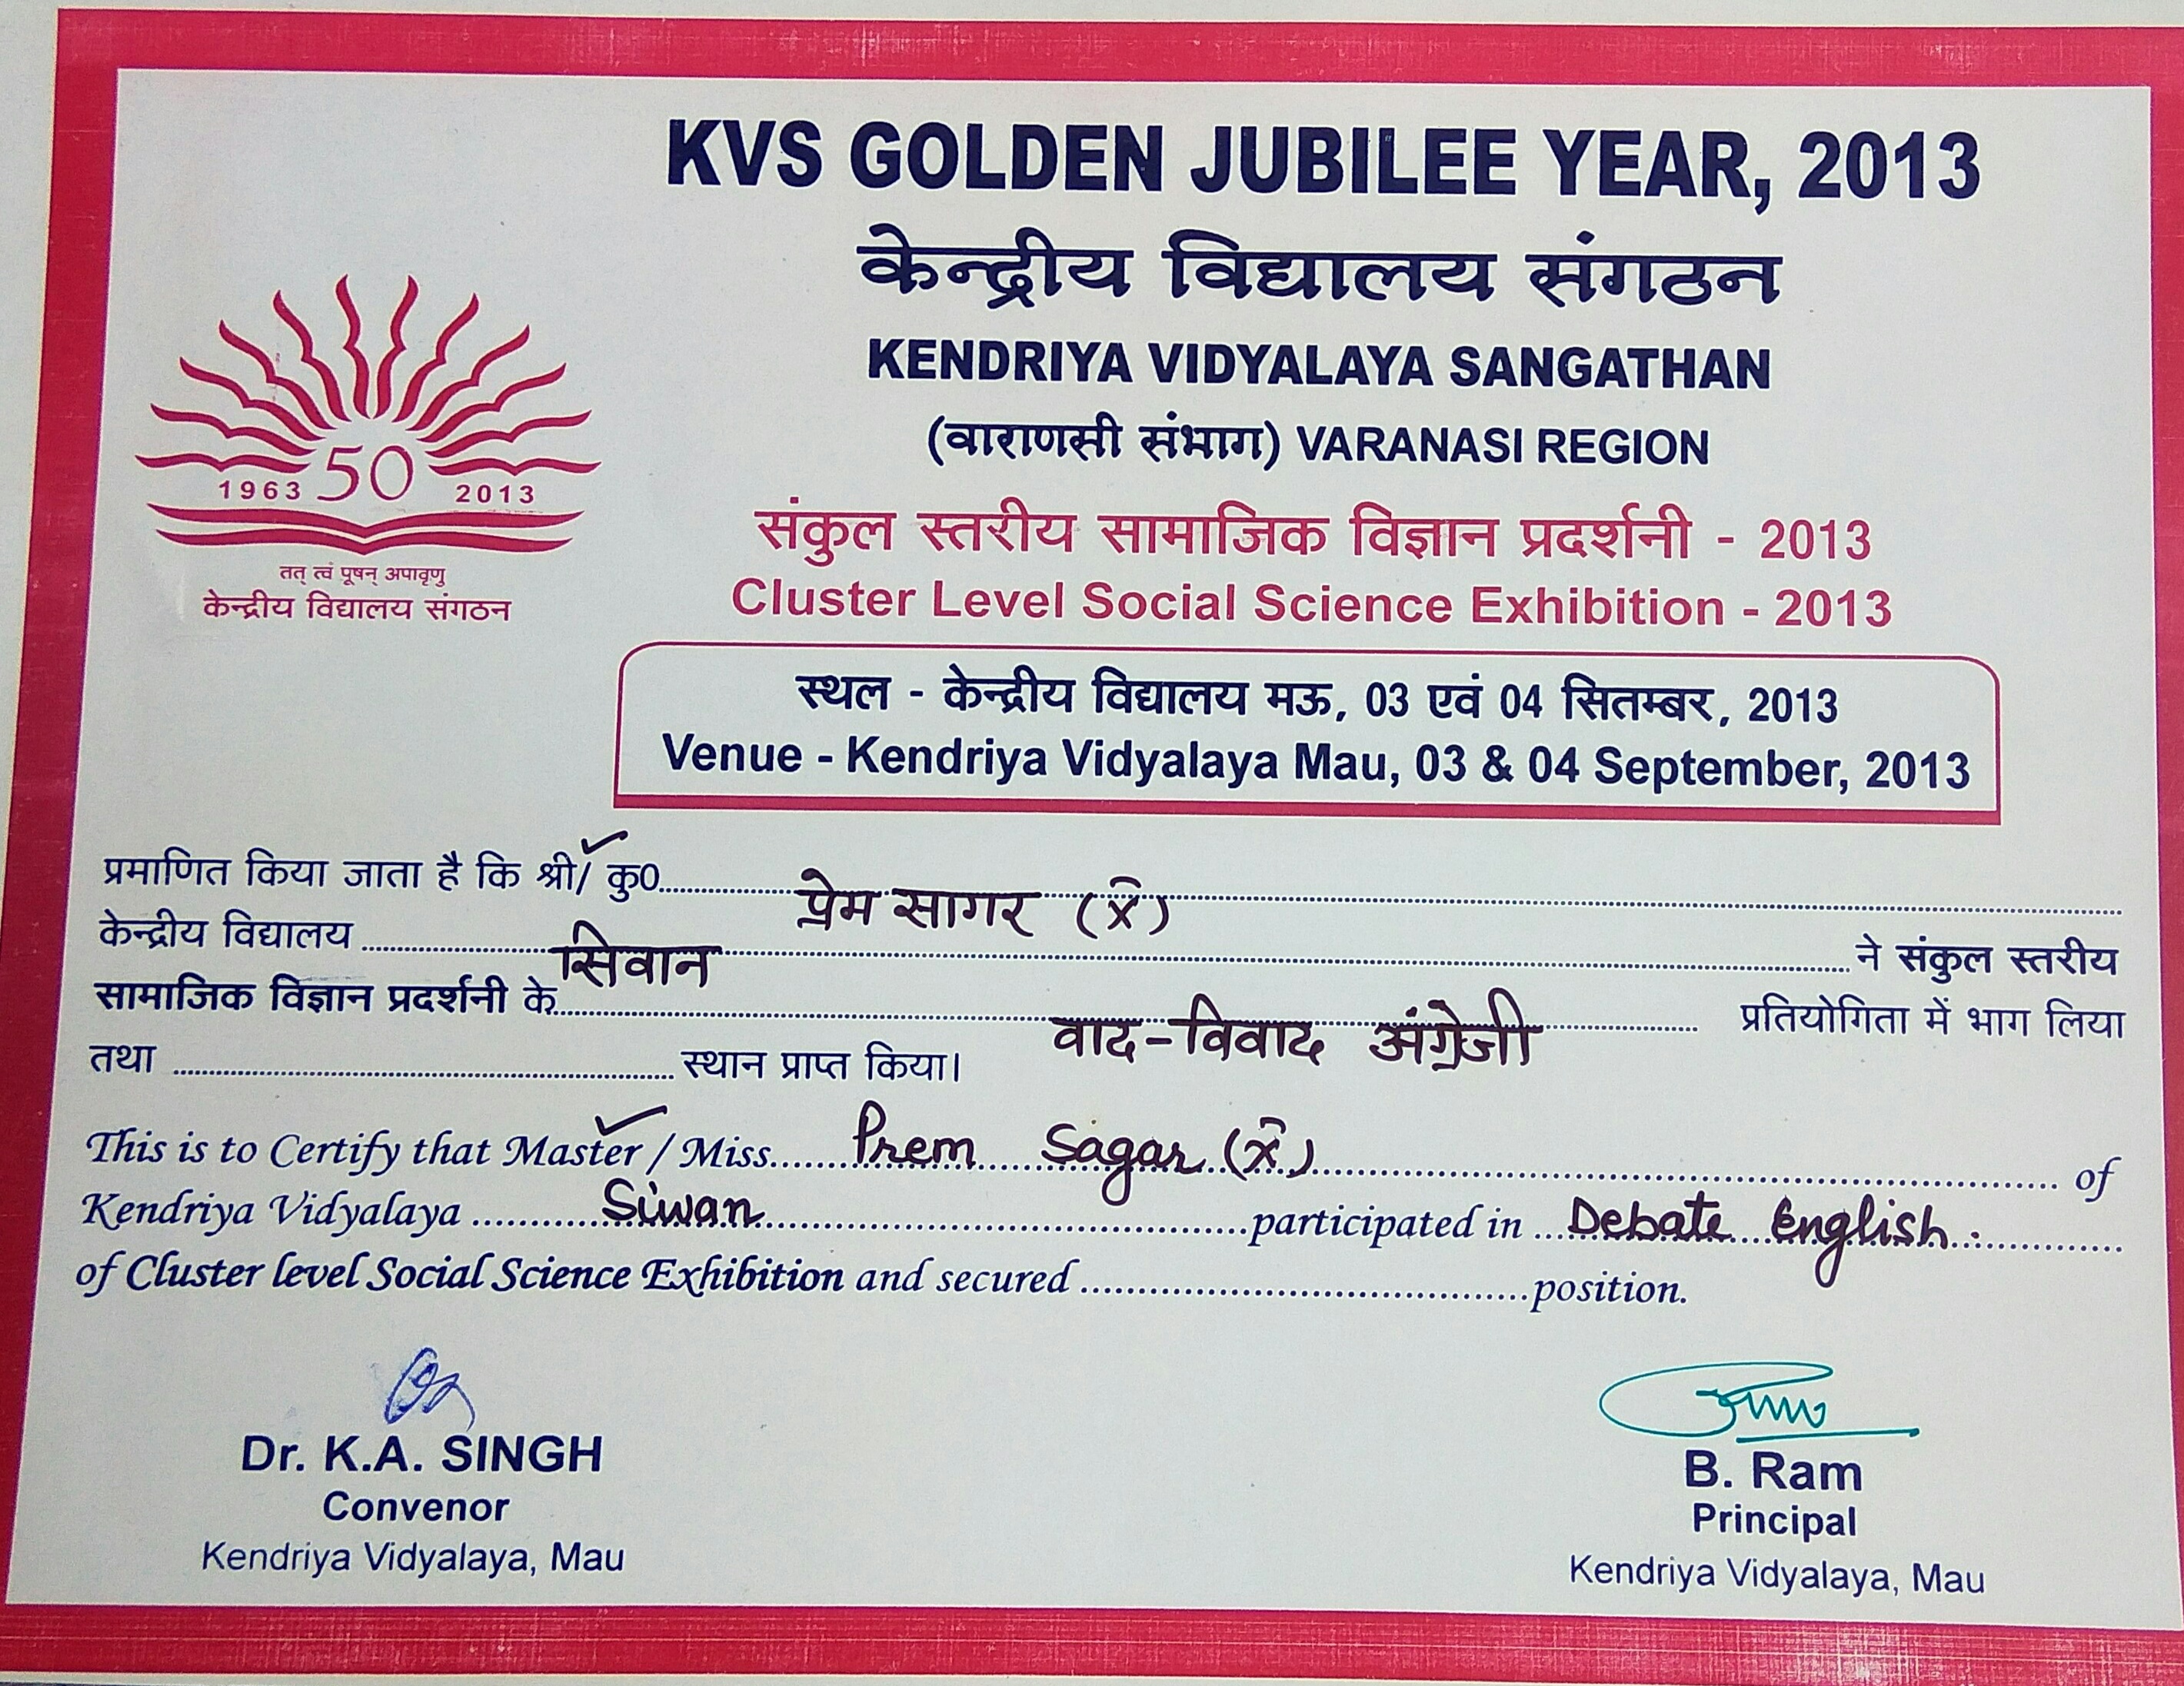 KVS GOLDEN JUBILEE YEAR, 2013
केन्द्रीय विद्यालय संगठन
KENDRIYA VIDYALAYA SANGATHAN
(वाराणसी संभाग) VARANASI REGION
1963 50 2013
तत् त्वं पूषन् अपावृणु
केन्द्रीय विद्यालय संगठन
संकुल स्तरीय सामाजिक विज्ञान प्रदर्शनी - 2013
Cluster Level Social Science Exhibition - 2013
स्थल - केन्द्रीय विद्यालय मऊ, 03 एवं 04 सितम्बर, 2013
Venue - Kendriya Vidyalaya Mau, 03 & 04 September, 2013
प्रमाणित किया जाता है कि श्री/ कु0 प्रेम सागर (X)
केन्द्रीय विद्यालय सिवान ने संकुल स्तरीय
सामाजिक विज्ञान प्रदर्शनी के वाद-विवाद अंग्रेजी प्रतियोगिता में भाग लिया
तथा ........ स्थान प्राप्त किया।
This is to Certify that Master / Miss Prem Sagar (X) of
Kendriya Vidyalaya Siwan participated in Debate English.
of Cluster level Social Science Exhibition and secured ........ position.
Dr. K.A. SINGH
Convenor
Kendriya Vidyalaya, Mau
B. Ram
Principal
Kendriya Vidyalaya, Mau